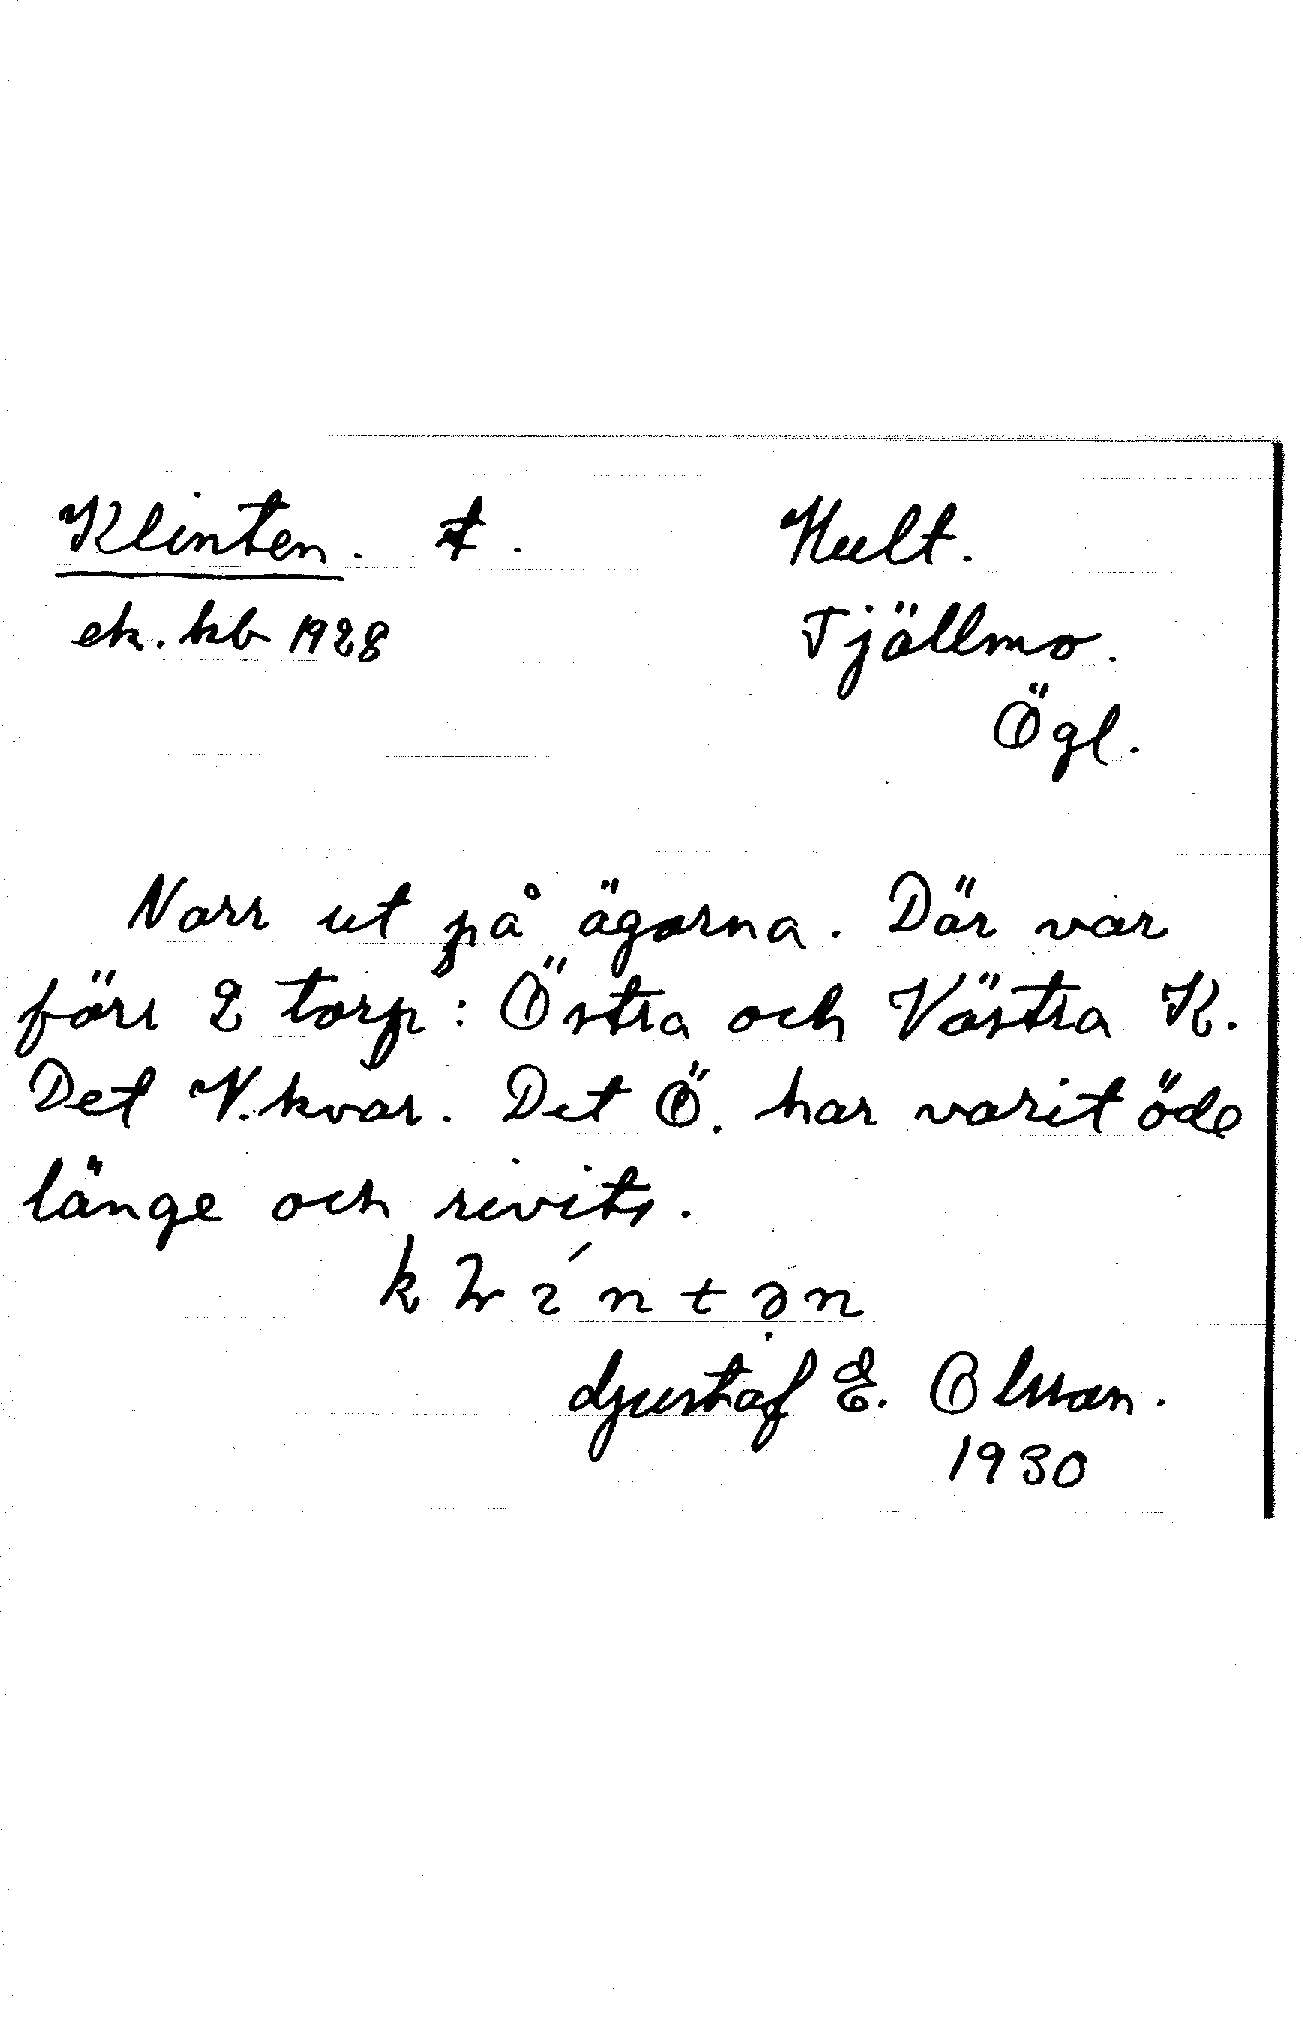 Klinten. t. Hult.
ek. kb 1928 Tjällmo.
Ögl.
Norr ut på ägorna. Där var
förr 2 torp: Östra och Västra K.
Det V. kvar. Det Ö. har varit öde
länge och rivits.
Gustaf E. Olsson.
1930